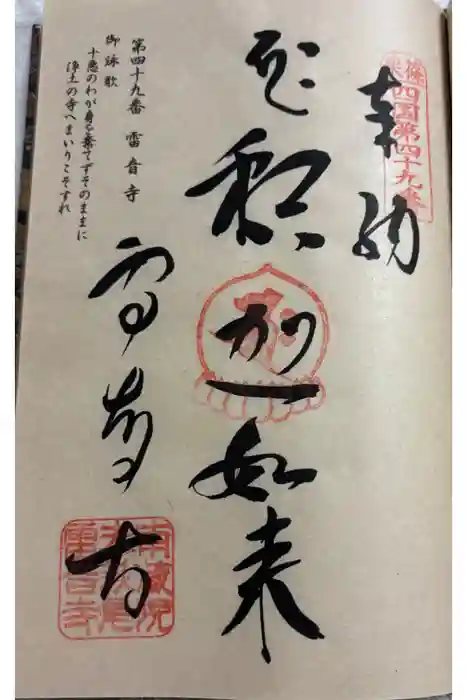 篠栗
四国第四十九番
奉納
釈迦如来
雷音寺
南蔵院
雷音寺
第四十九番 雷音寺
御詠歌
十悪のわが身を棄てずそのままに
浄土の寺へまいりこそすれ